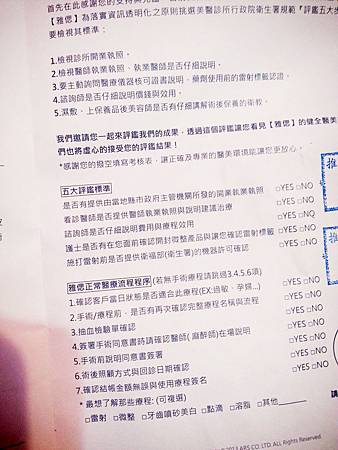 首先在此感謝您的支持與光臨
【雅偲】為落實資訊透明化之原則挑選美醫診所行政院衛生署規範『評鑑五大
要檢視其標準：
1.檢視診所開業執照。
2.檢視醫師執業執照、執業醫師是否仔細說明。
3.要主動詢問醫療儀器核可證書說明、藥劑使用前的雷射標籤認證。
4.諮詢師是否仔細說明價錢與效用。
5.濕敷、上保養品後美容師是否有仔細講解術後保養的衛教。
我們邀請您一起來評鑑我們的成果，透過這個評鑑讓您看見【雅偲】的健全醫美
們也將虛心的接受您的評鑑結果！
*感謝您的撥空填寫考核表，讓正確及專業的醫美環境能讓您更放心。
五大評鑑標準
是否有提供由當地縣市政府主管機關所發的開業執業執照 □YES □NO
看診醫師是否提供醫師執業執照與說明建議治療 □YES □NO
諮詢師是否仔細說明費用與療程效用 □YES □NO
護士是否有在您面前確認開封微整產品與讓您確認雷射標籤 □YES □NO
施打雷射前是否提供衛福部(衛生署)的機器許可確認 □YES □NO
雅偲正常醫療流程程序 (若無手術療程請跳過3.4.5.6項)
1.確認客戶當日狀態是否適合此療程(EX:過敏、孕婦...) □YES □NO
2.手術/療程前、是否有再次確認完整療程名稱與流程 □YES □NO
3.抽血檢驗單確認 □YES □NO
4.簽署手術同意書時請確認醫師( 麻醉師)在場說明 □YES □NO
5.手術前說明同意書簽署 □YES □NO
6.術後照顧方式與回診日期確認 □YES □NO
7.確認結帳金額無誤與使用療程簽名 □YES □NO
* 最想了解那些療程: (可複選)
□雷射 □微整 □牙齒噴砂美白 □點滴 □溶脂 □其他
CO. LTD. ALL Rights Reserved.